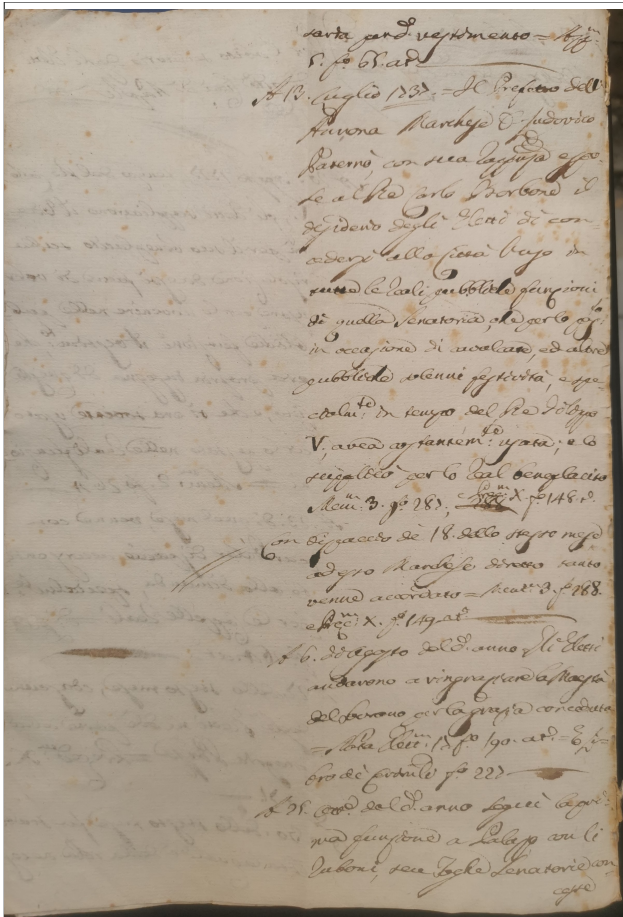 sarta per d.º vestimento =
5. fº 65. at.º
A 13. luglio 1737 = Il Prefetto dell'
Annona Marchese D. Ludovico
Paternò, con sua
se al Re Carlo Borbone il
desiderio degli Eletti di con-
cedersi alla Città l'uso in
tutte le Reali pubbliche funzioni
di quella Senatoria, che per lo
in occasione di cavalcate, ed altre
pubbliche solenni festività, e spe-
cialm.te in tempo del Re Filippo
V, avea costantem.te usata; e lo
supplicò per lo Real beneplacito
3. fº 287, X. fº 148. t.
Con dispaccio de' 18. dello stesso mese
ad esso Marchese diretto tanto
venne accordato = 3. fº 288.
e X. fº 149. at.º
A 6. di Agosto del d.º anno gli Eletti
andarono a ringraziare la Maestà
del Sovrano per la grazia conceduta
= 17 fº 190. at.º = Li-
bro de' fº 227
A 25. del d.º anno seguì la pri-
ma funzione a Palazzo con li
Ruboni, seu Toghe Senatorie con-
cesse